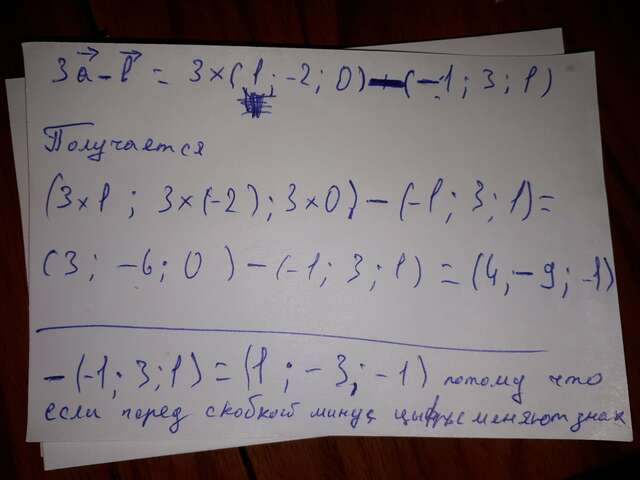 3a⃗ - b⃗ = 3×(1; -2; 0) - (-1; 3; 1)
Получается
(3×1; 3×(-2); 3×0) - (-1; 3; 1) =
(3; -6; 0) - (-1; 3; 1) = (4; -9; -1)
-(-1; 3; 1) = (1; -3; -1) потому что
если перед скобкой минус, цифры меняют знак